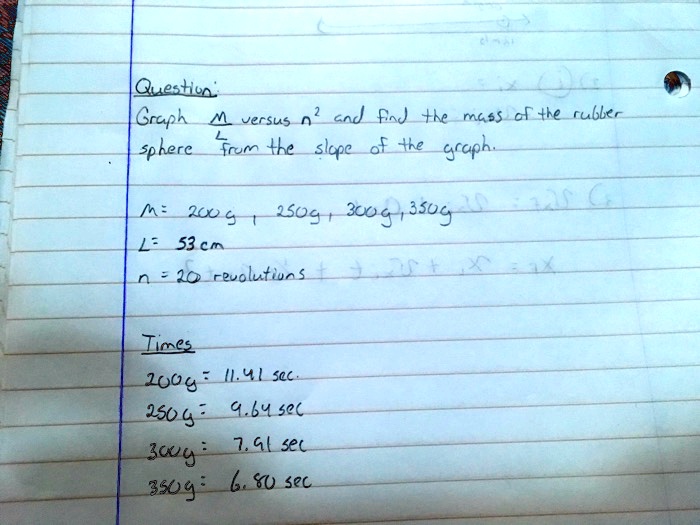 Question:
Graph M/L versus n² and find the mass of the rubber
sphere from the slope of the graph.
M= 200g, 250g, 300g, 350g
L= 53cm
n = 20 revolutions
Times
200g= 11.41 sec.
250g= 9.64 sec
300g= 7.91 sec
350g= 6.80 sec